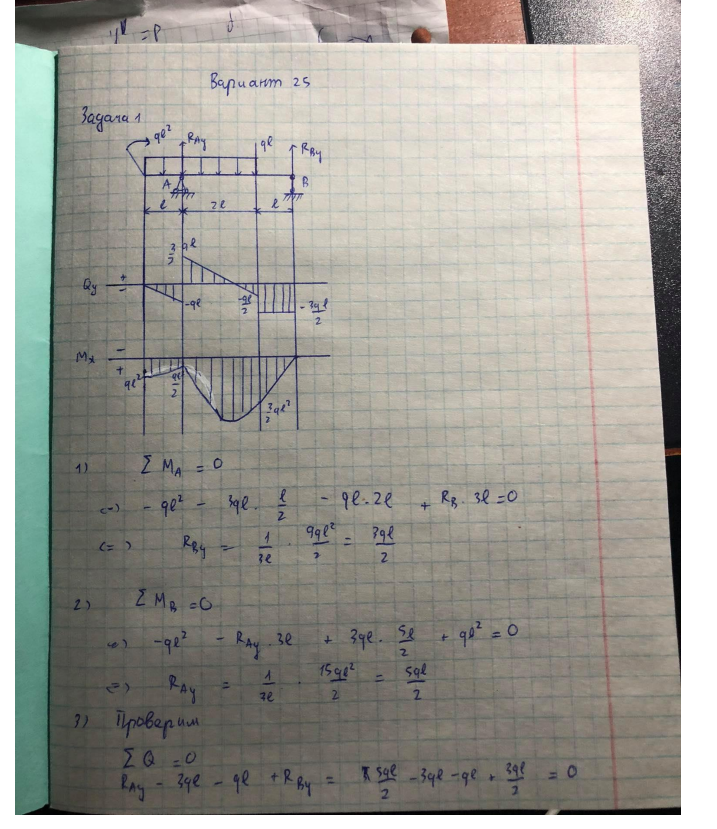 = P
Вариант 25
Задача 1
ql² R_Ay ql R_By
A B
l 2l l
3/2 ql
Qy + − -ql -ql/2 -3ql/2
Mx − + ql² ql²/2 3/2 ql²
1) Σ M_A = 0
<=> - ql² - 3ql · l/2 - ql·2l + R_B · 3l = 0
<=> R_By = 1/3l · 9ql²/2 = 3ql/2
2) Σ M_B = 0
<=> -ql² - R_Ay · 3l + 3ql · 5l/2 + ql² = 0
<=> R_Ay = 1/3l · 15ql²/2 = 5ql/2
3) Проверим
Σ Q = 0
R_Ay - 3ql - ql + R_By = 5ql/2 - 3ql - ql + 3ql/2 = 0